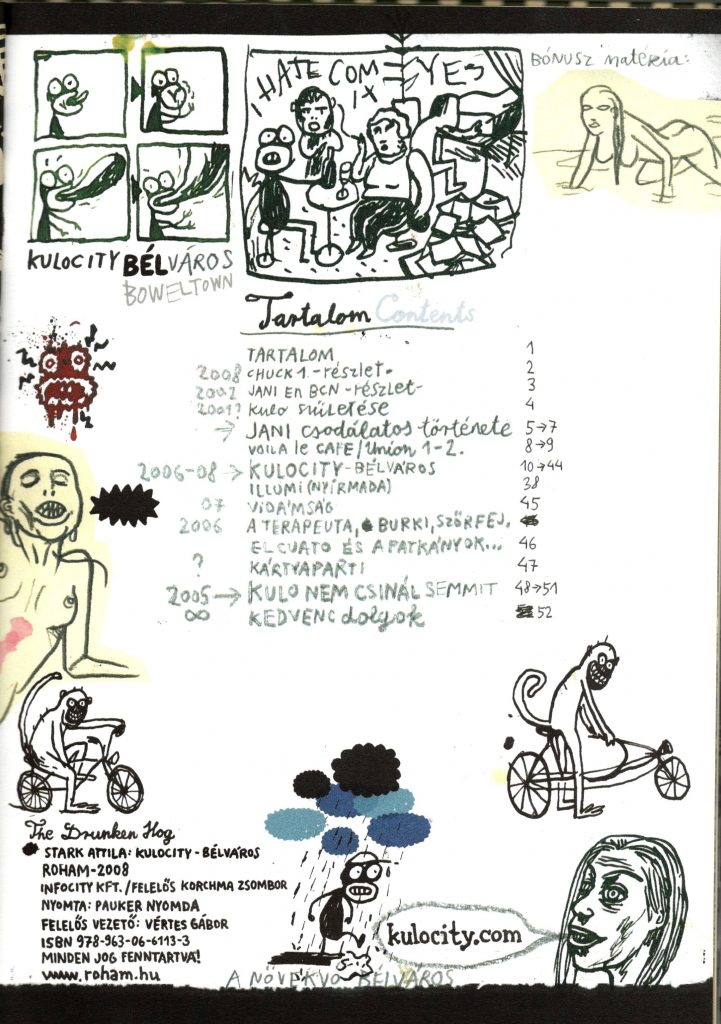 I HATE COMIX YES
BÓNUSZ matéria:
KULOCITY BÉLVÁROS
BOWELTOWN
Tartalom Contents
TARTALOM 1
2008 CHUCK 1.-részlet- 2
2002 JANI En BCN -részlet- 3
2001? Kulo születése 4
→ JANI csodálatos története 5→7
VOILA le CAFE/Union 1-2. 8→9
2006-08→ KULOCITY-BÉLVÁROS 10→44
ILLUMI (NYÍRMADA) 38
07 VIDÁMSÁG 45
2006 A TERAPEUTA, BURKI, SZŐRFEJ.
EL CUATO ÉS A PATKÁNYOK... 46
? KÁRTYAPARTI 47
2005→ KULO NEM CSINÁL SEMMIT 48→51
∞ KEDVENC dolgok 52
The Drunken Hog
STARK ATTILA: KULOCITY-BÉLVÁROS
ROHAM-2008
INFOCITY KFT./FELELŐS KORCHMA ZSOMBOR
NYOMTA: PAUKER NYOMDA
FELELŐS VEZETŐ: VÉRTES GÁBOR
ISBN 978-963-06-6113-3
MINDEN JOG FENNTARTVA!
www.roham.hu
kulocity.com
A NÖVEKVŐ BÉLVÁROS